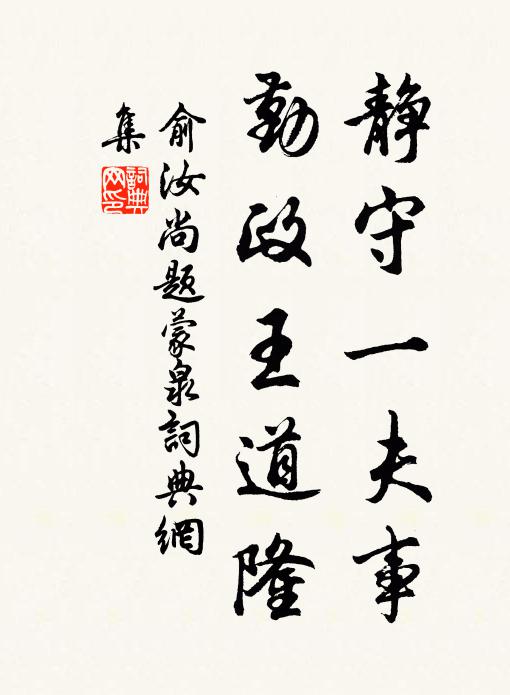 静守一夫事
勤政王道隆
俞汝尚题蒙泉詞典網
集
詞典
网印